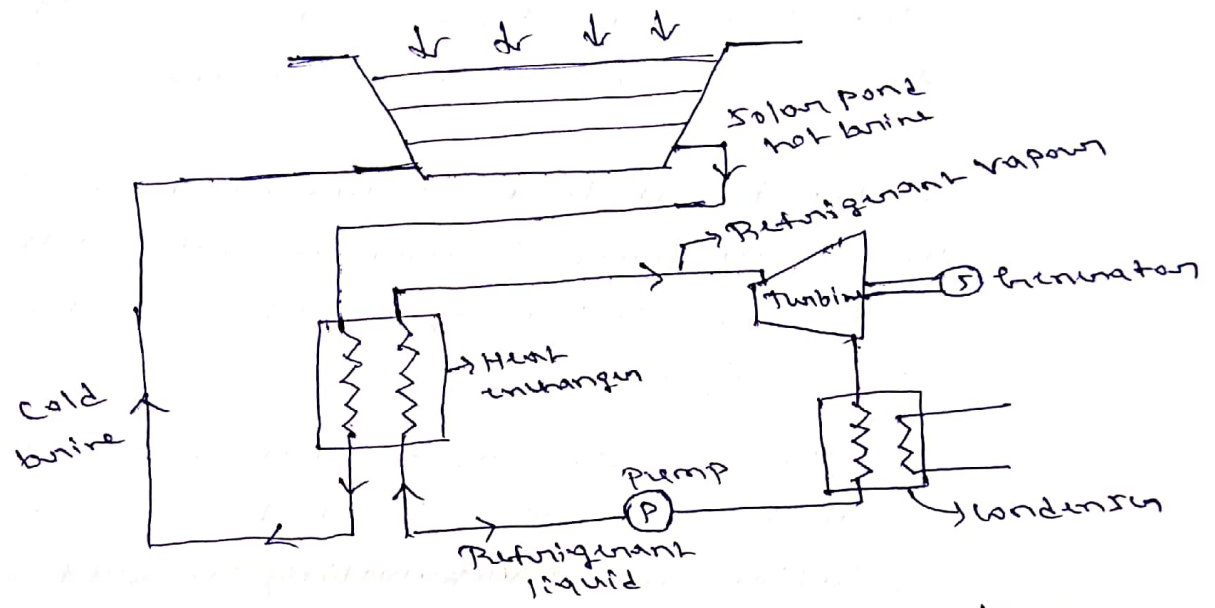 Solar pond
hot brine
Refrigerant vapour
Turbine
G Generator
Heat
exchanger
Cold
brine
Pump
P
Condenser
Refrigerant
liquid